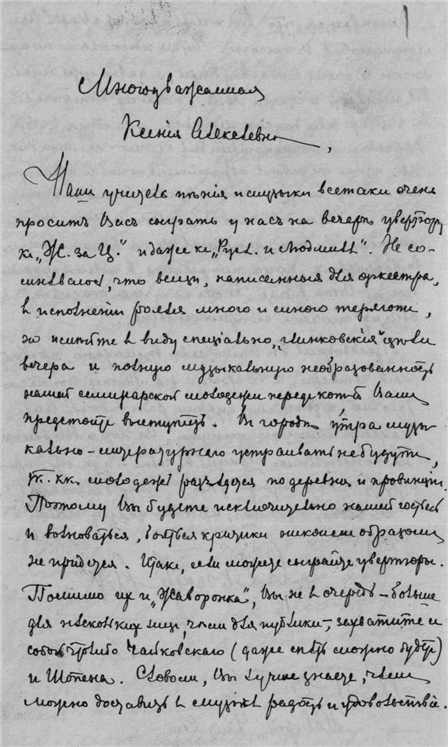 Многоуважаемая
Ксенія Алексѣевна,
Нашъ учитель пѣнія и музыки всетаки очень
проситъ Васъ сыграть у насъ на вечерѣ увертюру
къ „Ж. за Ц." и даже къ „Русл. и Людмилѣ". Не со-
мнѣваюсь, что вещи, написанныя для оркестра,
въ исполненіи рояля много и много теряютъ,
но имѣйте въ виду спеціально „Глинковскія" цѣли
вечера и полную музыкальную необразованность
нашей семинарской молодежи передъ которой Вамъ
предстоитъ выступать. Въ городѣ утра музы-
кально-литературнаго устраивать не будутъ,
т. кк. молодежь разъѣдется по деревнямъ и провинціи.
Поэтому Вы будете исключительно нашей гостьей
и волноваться, бояться критики никоимъ образомъ
не придется. Итакъ, если можете сыграйте увертюры.
Помимо ихъ и „Жаворонка", Вы не въ очередь – больше
для нѣсколькихъ лицъ, чѣмъ для публики –, захватите съ
собой Чайковскаго (даже спѣть можно будетъ)
и Шопена. Словомъ, Вы лучше знаете, чѣмъ
можно доставить въ музыкѣ радость и удовольствіе.